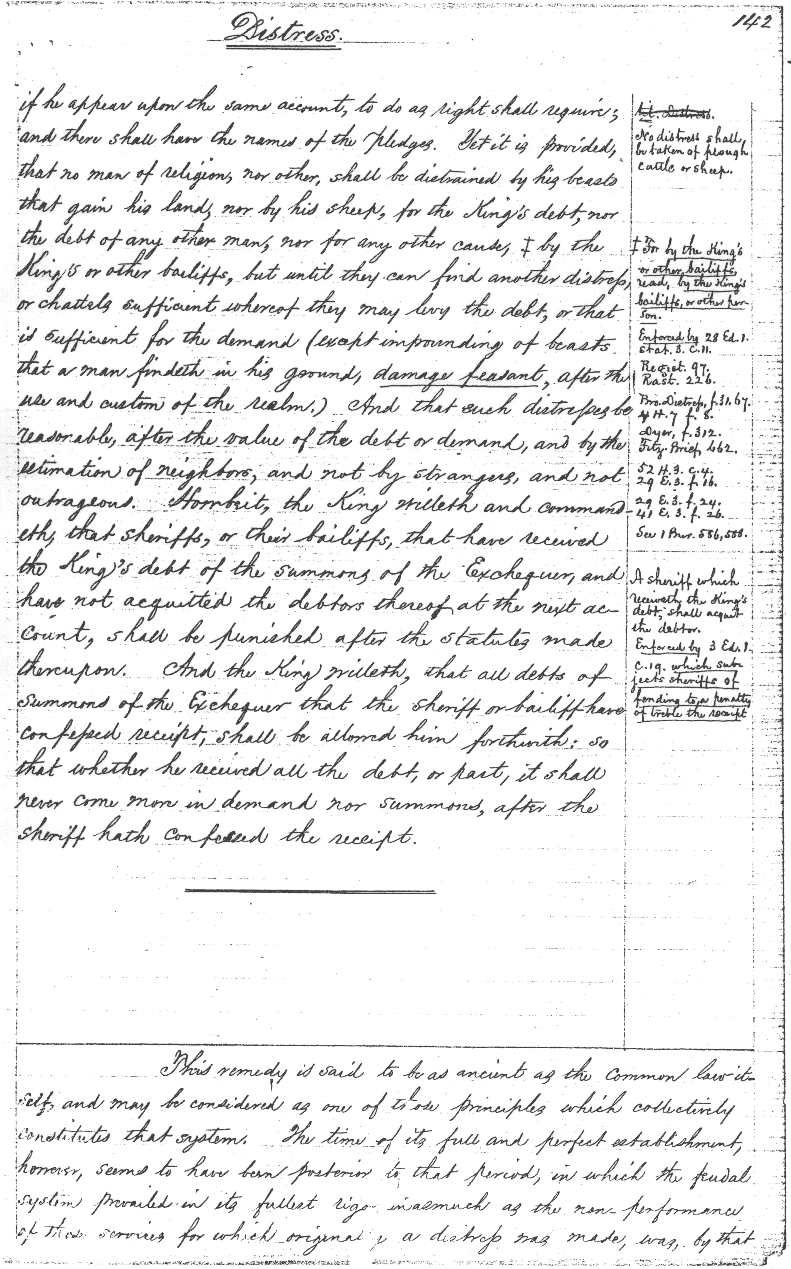 142
Distress.
if he appear upon the same account, to do as right shall require;
and there shall have the names of the pledges. Yet it is provided,
that no man of religion, nor other, shall be distrained by his beasts
that gain his land, nor by his sheep, for the King's debt, nor
the debt of any other man, nor for any other cause, ‡ by the
King's or other bailiffs, but until they can find another distress,
or chattels sufficient whereof they may levy the debt, or that
is sufficient for the demand (except impounding of beasts
that a man findeth in his ground, damage feasant, after the
use and custom of the realm.) And that such distresses be
reasonable, after the value of the debt or demand, and by the
estimation of neighbors, and not by strangers, and not
outrageous. Howbeit, the King willeth and command-
eth, that sheriffs, or their bailiffs, that have received
the King's debt of the summons of the Exchequer, and
have not acquitted the debtors thereof at the next ac-
count, shall be punished after the statutes made
thereupon. And the King willeth, that all debts of
summons of the Exchequer that the sheriff or bailiff have
confessed receipt, shall be allowed him forthwith: so
that whether he received all the debt, or part, it shall
never come more in demand nor summons, after the
sheriff hath confessed the receipt.
St. Distress.
No distress shall
be taken of plough
cattle or sheep.
‡ For by the King's
or other bailiffs,
read, by the King's
bailiffs, or other per-
son.
Enforced by 28 Ed. 1.
stat. 3. c. 11.
Regist. 97,
Rast. 226.
Bro. Distress, f. 31, 67.
4 H. 7 f. 8.
Dyer, f. 312.
Fitz. Brief, 462.
52 H. 3. c. 4.
29 E. 3. f. 16.
29 E. 3. f. 24.
41 E. 3. f. 26.
See 1 Burr. 586, 588.
A sheriff which
receiveth the King's
debt, shall acquit
the debtor.
Enforced by 3 Ed. 1.
c. 19. which sub-
jects sheriffs of
fending to a penalty
of treble the receipt
This remedy is said to be as ancient as the common law it-
self, and may be considered as one of those principles which collectively
constitutes that system. The time of its full and perfect establishment,
however, seems to have been posterior to that period, in which the feudal
system prevailed in its fullest rigo inasmuch as the non-performance
of those services for which original y a distress was made, was, by that